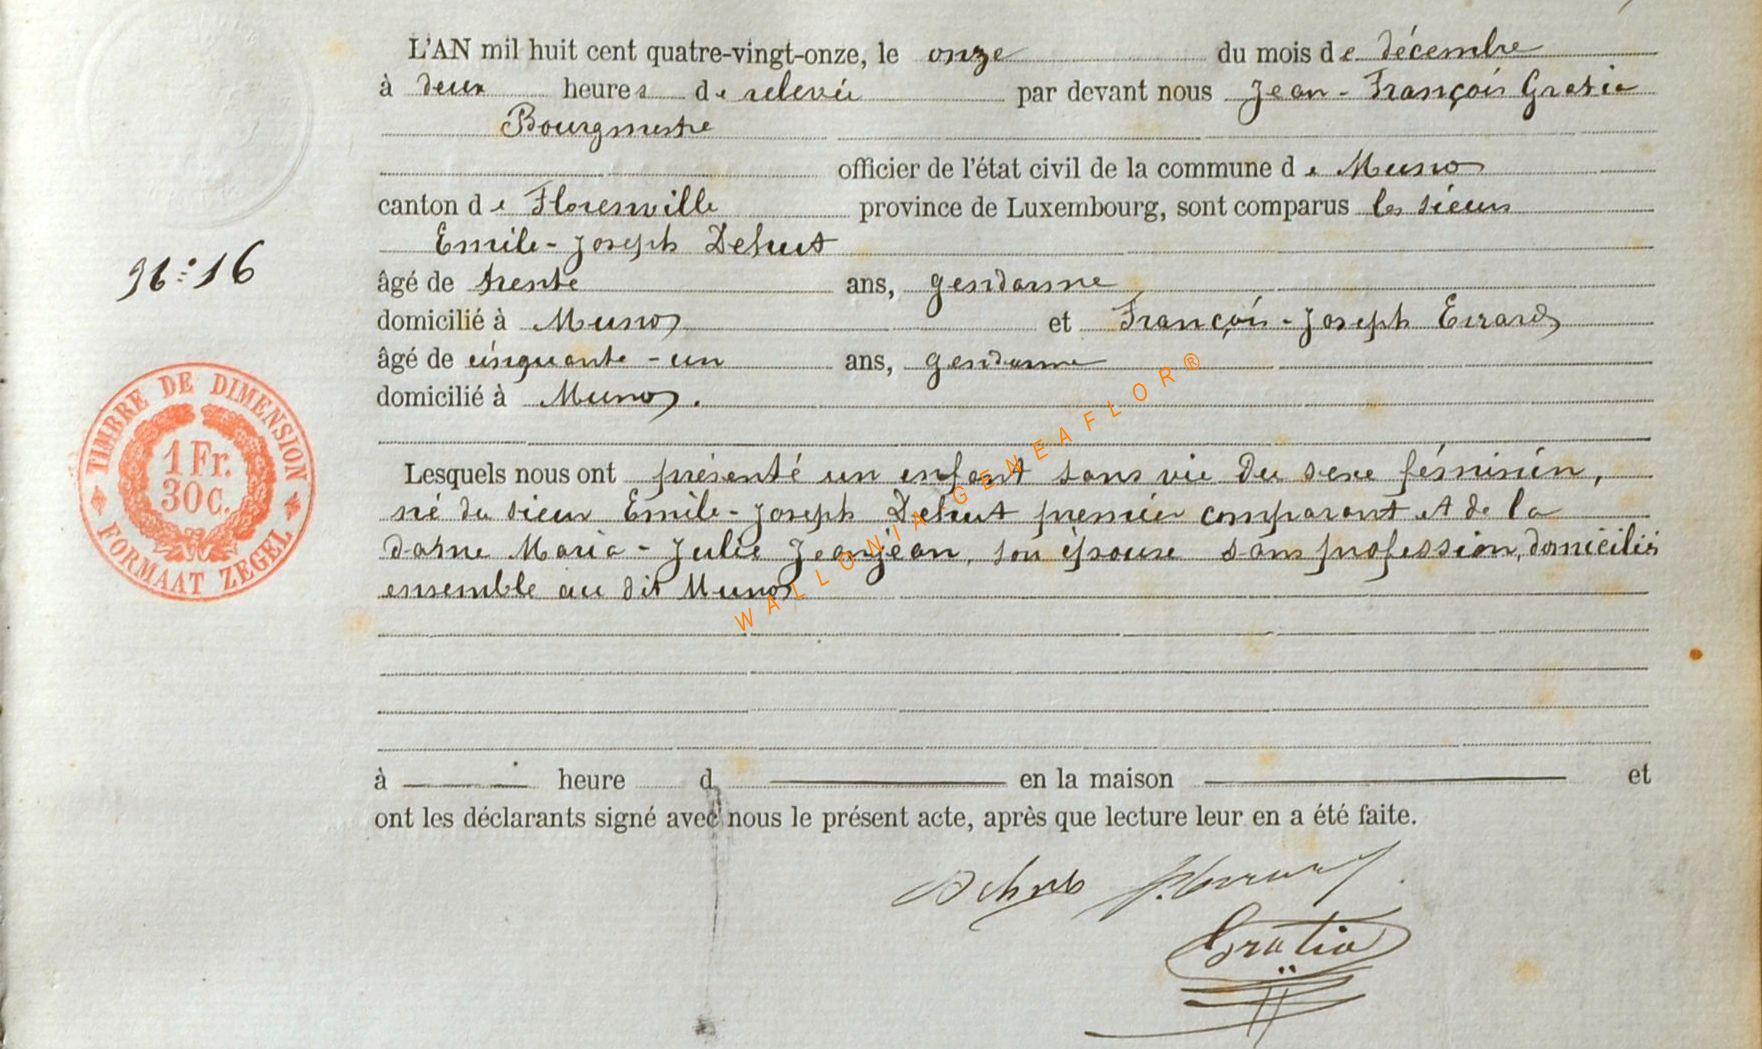 L'AN mil huit cent quatre-vingt-onze, le onze du mois de décembre
à deux heures de relevée par devant nous Jean-François Gratia
Bourgmestre
officier de l'état civil de la commune de Muno
canton de Florenville province de Luxembourg, sont comparus les sieurs
Emile-Joseph Dehut
âgé de trente ans, gendarme
N°:16
domicilié à Muno et François-Joseph Evrard
âgé de cinquante-un ans, gendarme
domicilié à Muno.
TIMBRE DE DIMENSION
1 Fr.
30 C.
FORMAAT ZEGEL
Lesquels nous ont présenté un enfant sans vie du sexe féminin,
né du sieur Emile-Joseph Dehut premier comparant et de la
dame Maria-Julie Jeanjean, son épouse sans profession, domiciliés
ensemble au dit Muno
WALLONIA GENEAFLOR®
à heure d en la maison et
ont les déclarants signé avec nous le présent acte, après que lecture leur en a été faite.
Dehut
Gratia